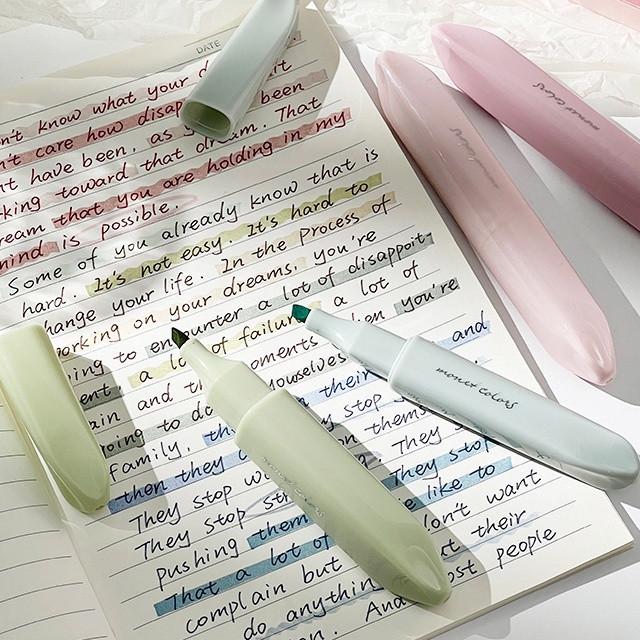 DATE
n't know what your
n't care how disap been
't have been, as That
king toward that dream. That
ream that you are holding in my
mind is possible.
Some of you already know that is
hard. It's not easy. It's hard to
hange your life. In the Process of
orking on your dreams, you're
ing to encounter a lot of disappoit-
ent. a lot of failure a lot of
ain and moments when you're
going to do yourselves and
Family, their
then they they stop
They stop on thems
They stop They stop
pushing them like to
That a lot of don't want
complain but their
do anything most people
And
monet colors
monet colors
monet colors